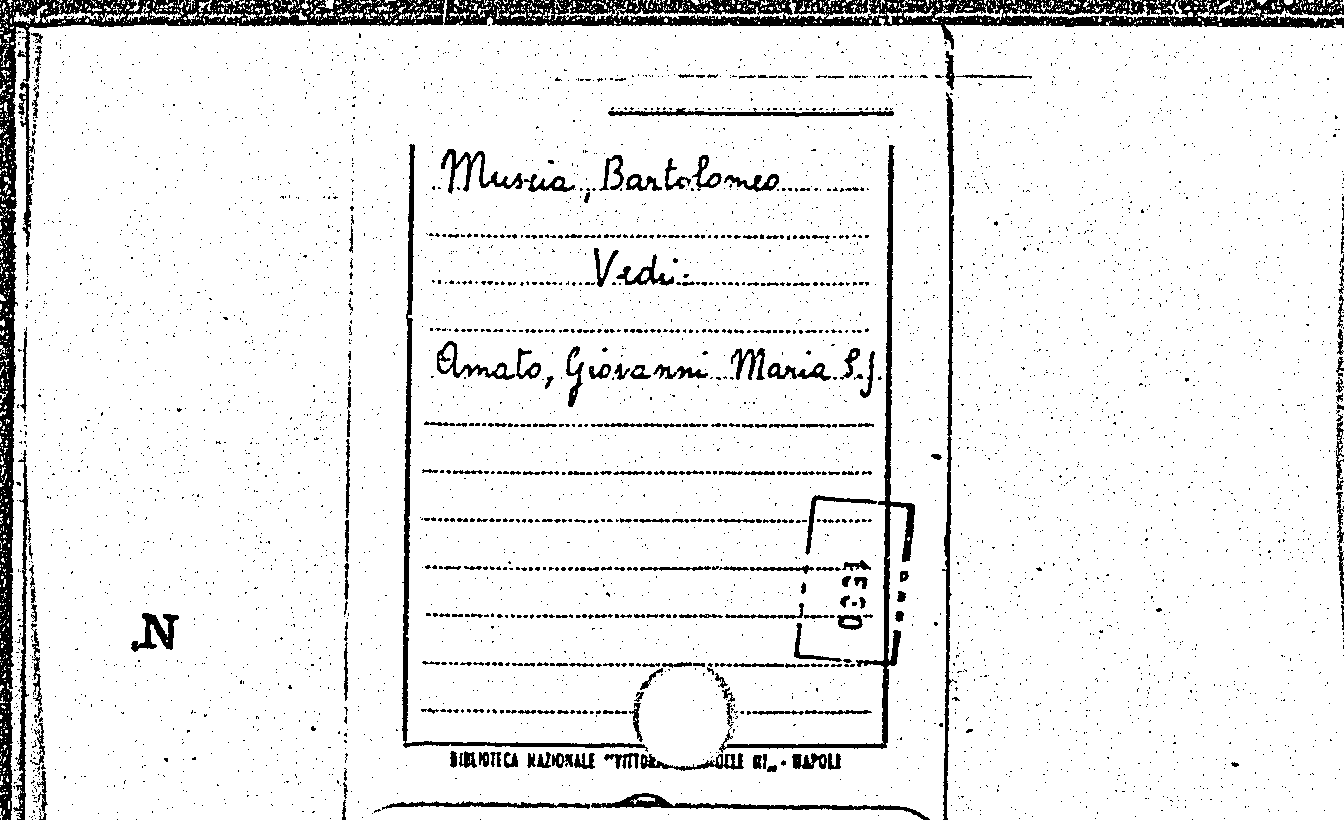 Muscia, Bartolomeo
Vedi:
Amato, Giovanni Maria S.J.
N.
BIBLIOTECA NAZIONALE "VITTOR ELE III„ - NAPOLI